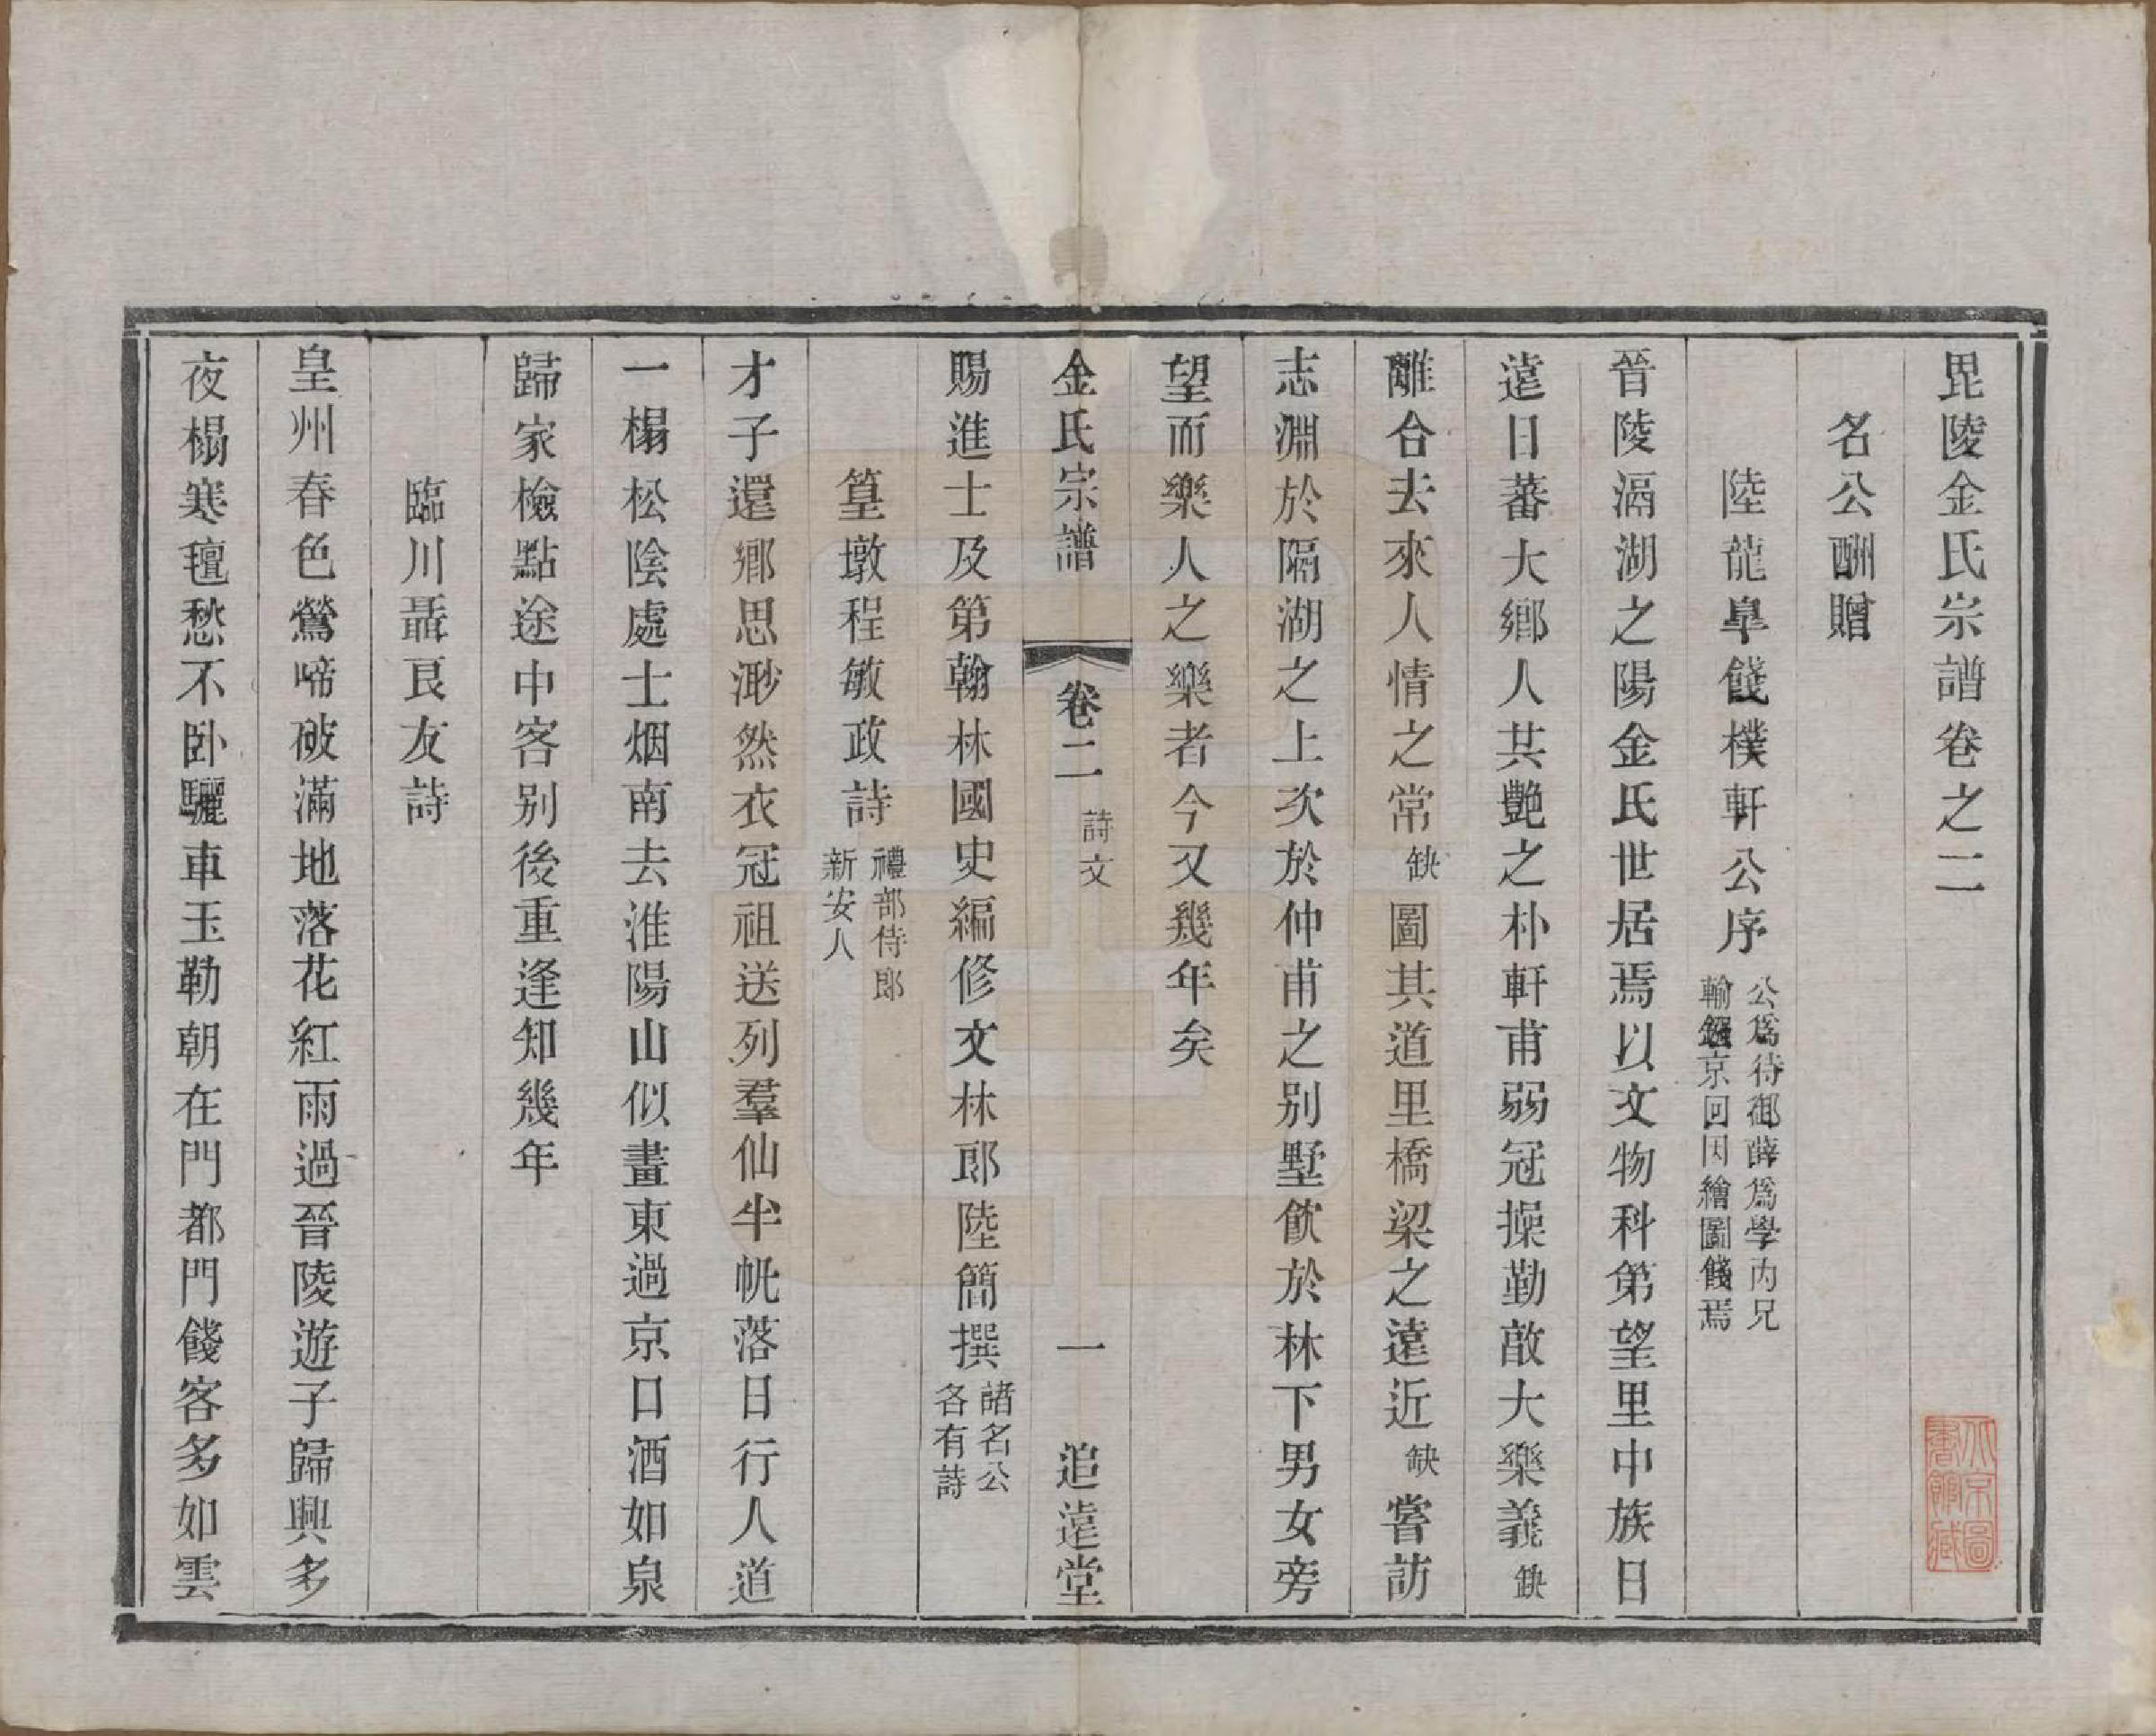 毘陵金氏宗譜卷之二
名公酬贈
陸龍臯餞樸軒公序
公爲待御薛爲學內兄
輸餉京回因繪圖餞焉
晉陵滆湖之陽金氏世居焉以文物科第望里中族日
遠日蕃大鄉人共艷之朴軒甫弱冠操勤敢大樂義缺
離合去來人情之常缺圖其道里橋梁之遠近缺嘗訪
志淵於隔湖之上次於仲甫之別墅飲於林下男女旁
望而樂人之樂者今又幾年矣
金氏宗譜 卷二 詩文 一 追遠堂
賜進士及第翰林國史編修文林郎陸簡撰
諸名公
各有詩
篁墩程敏政詩
禮部侍郎
新安人
才子還鄉思渺然衣冠祖送列羣仙半帆落日行人道
一榻松陰處士烟南去淮陽山似畫東過京口酒如泉
歸家檢點途中客別後重逢知幾年
臨川聶艮友詩
皇州春色鶯啼破滿地落花紅雨過晉陵遊子歸興多
夜榻寒氊愁不卧驪車玉勒朝在門都門餞客多如雲